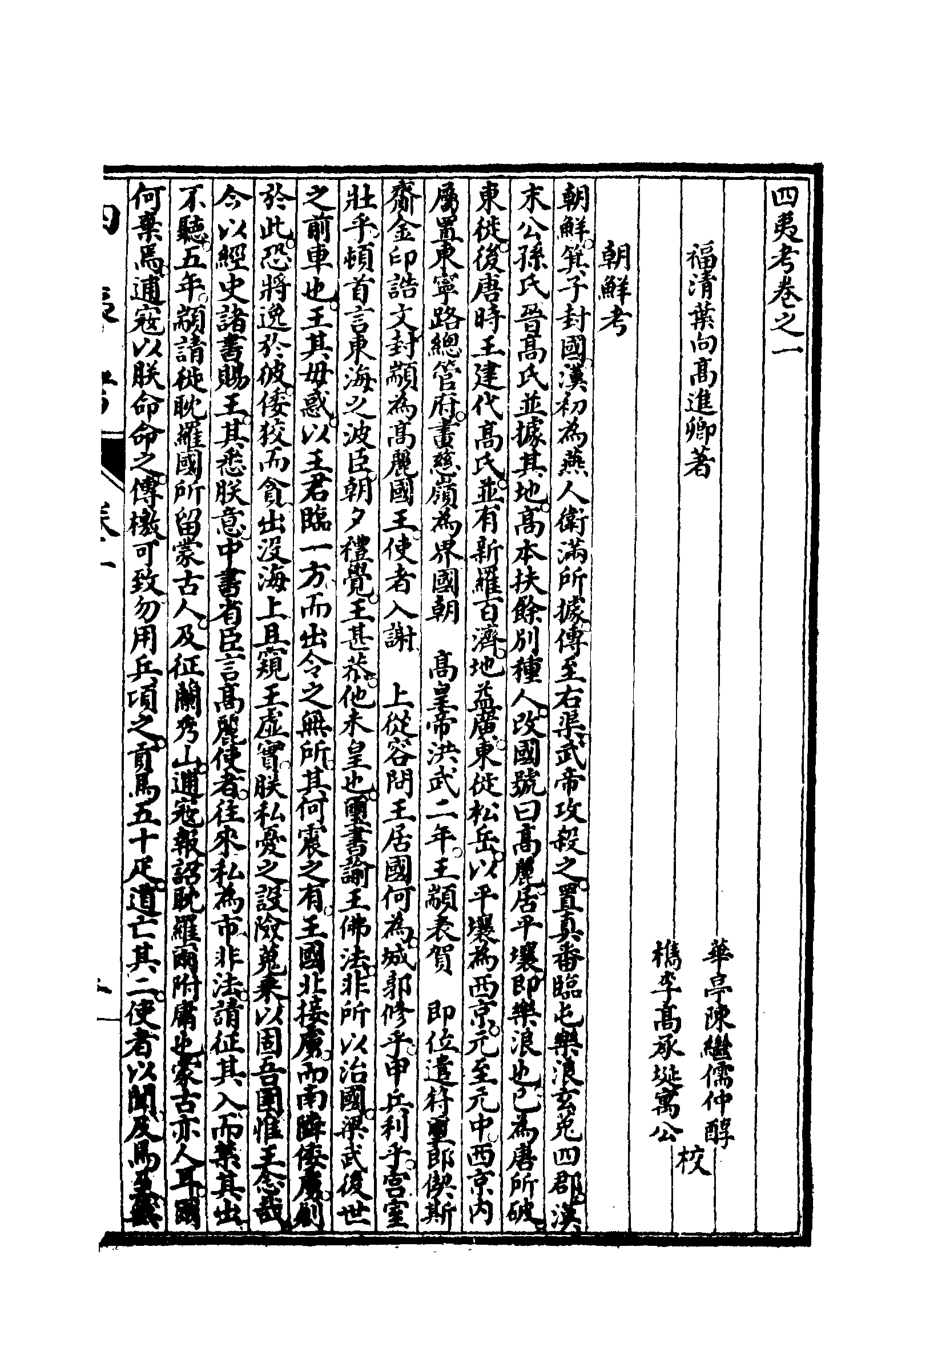 四夷考卷之一
福清葉向高進卿著
華亭陳繼儒仲醇
檇李高承埏寓公
校
朝鮮考
朝鮮箕子封國漢初為燕人衛滿所據傳至右渠武帝攻殺之置真番臨屯樂浪玄菟四郡漢
末公孫氏晉高氏並據其地高本扶餘別種人改國號曰高麗居平壤即樂浪也已為唐所破
東徙後唐時王建代高氏並有新羅百濟地益廣東徙松岳以平壤為西京元至元中西京內
屬置東寧路總管府畫慈嶺為界國朝　高皇帝洪武二年王顓表賀　即位遣符璽郎偰斯
齎金印誥文封顓為高麗國王使者入謝　上從容問王居國何為城郭修乎甲兵利乎宮室
壯乎頓首言東海之波臣朝夕禮覺王甚恭他未皇也璽書諭王佛法非所以治國梁武後世
之前車也王其毋惑以王君臨一方而出令之無所其何震之有王國北接虜而南隣倭虜創
於此恐將逸於彼倭狡而貪出沒海上且窺王虛實朕私憂之設險蒐乘以固吾圉惟王念哉
今以經史諸書賜王其悉朕意中書省臣言高麗使者往來私為市非法請征其入而禁其出
不聽五年顓請徙耽羅國所留蒙古人及征蘭秀山逋寇報詔耽羅爾附庸也蒙古亦人耳爾
何棄焉逋寇以朕命命之傳檄可致勿用兵項之貢馬五十疋道亡其二使者以聞及馬至